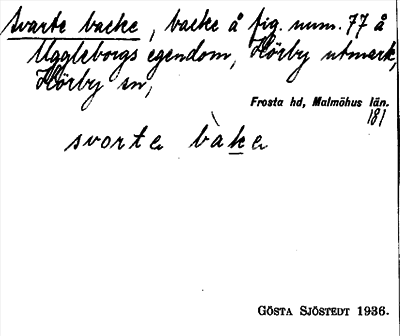 Svarte backe, backe å fig. num. 77 å
Uggleborgs egendom, Hörby utmark,
Hörby sn,
Frosta hd, Malmöhus län.
181
svorte bàke
GÖSTA SJÖSTEDT 1936.